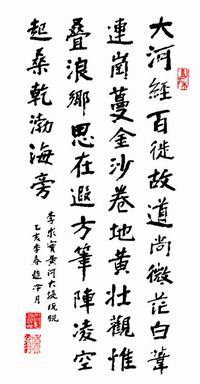 大河經百徙故道尚微茫白葦
連崗蔓金沙卷地黃壯觀惟
疊浪鄉思在遐方筆陣凌空
起桑乾渤海旁
李求實黃河大堤
乙亥季春趙冷月